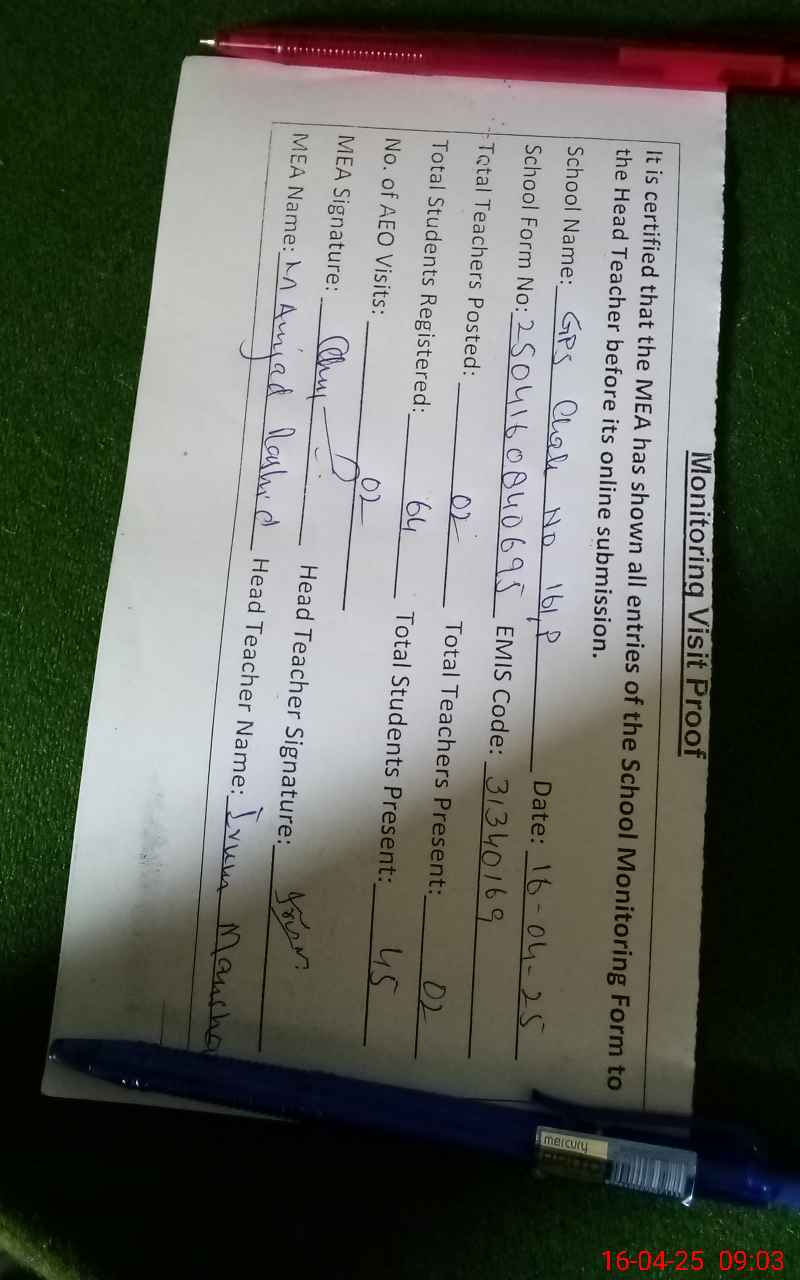 Monitoring Visit Proof
It is certified that the MEA has shown all entries of the School Monitoring Form to
the Head Teacher before its online submission.
School Name: GPS Chak No 161,P Date: 16-04-25
School Form No: 2504160840695 EMIS Code: 31340169
Total Teachers Posted: 02 Total Teachers Present: 02
Total Students Registered: 64 Total Students Present: 45
No. of AEO Visits: 02
MEA Signature: Head Teacher Signature:
MEA Name: M Amjad Rashid Head Teacher Name: Irum Mansha
mercury
16-04-25 09:03